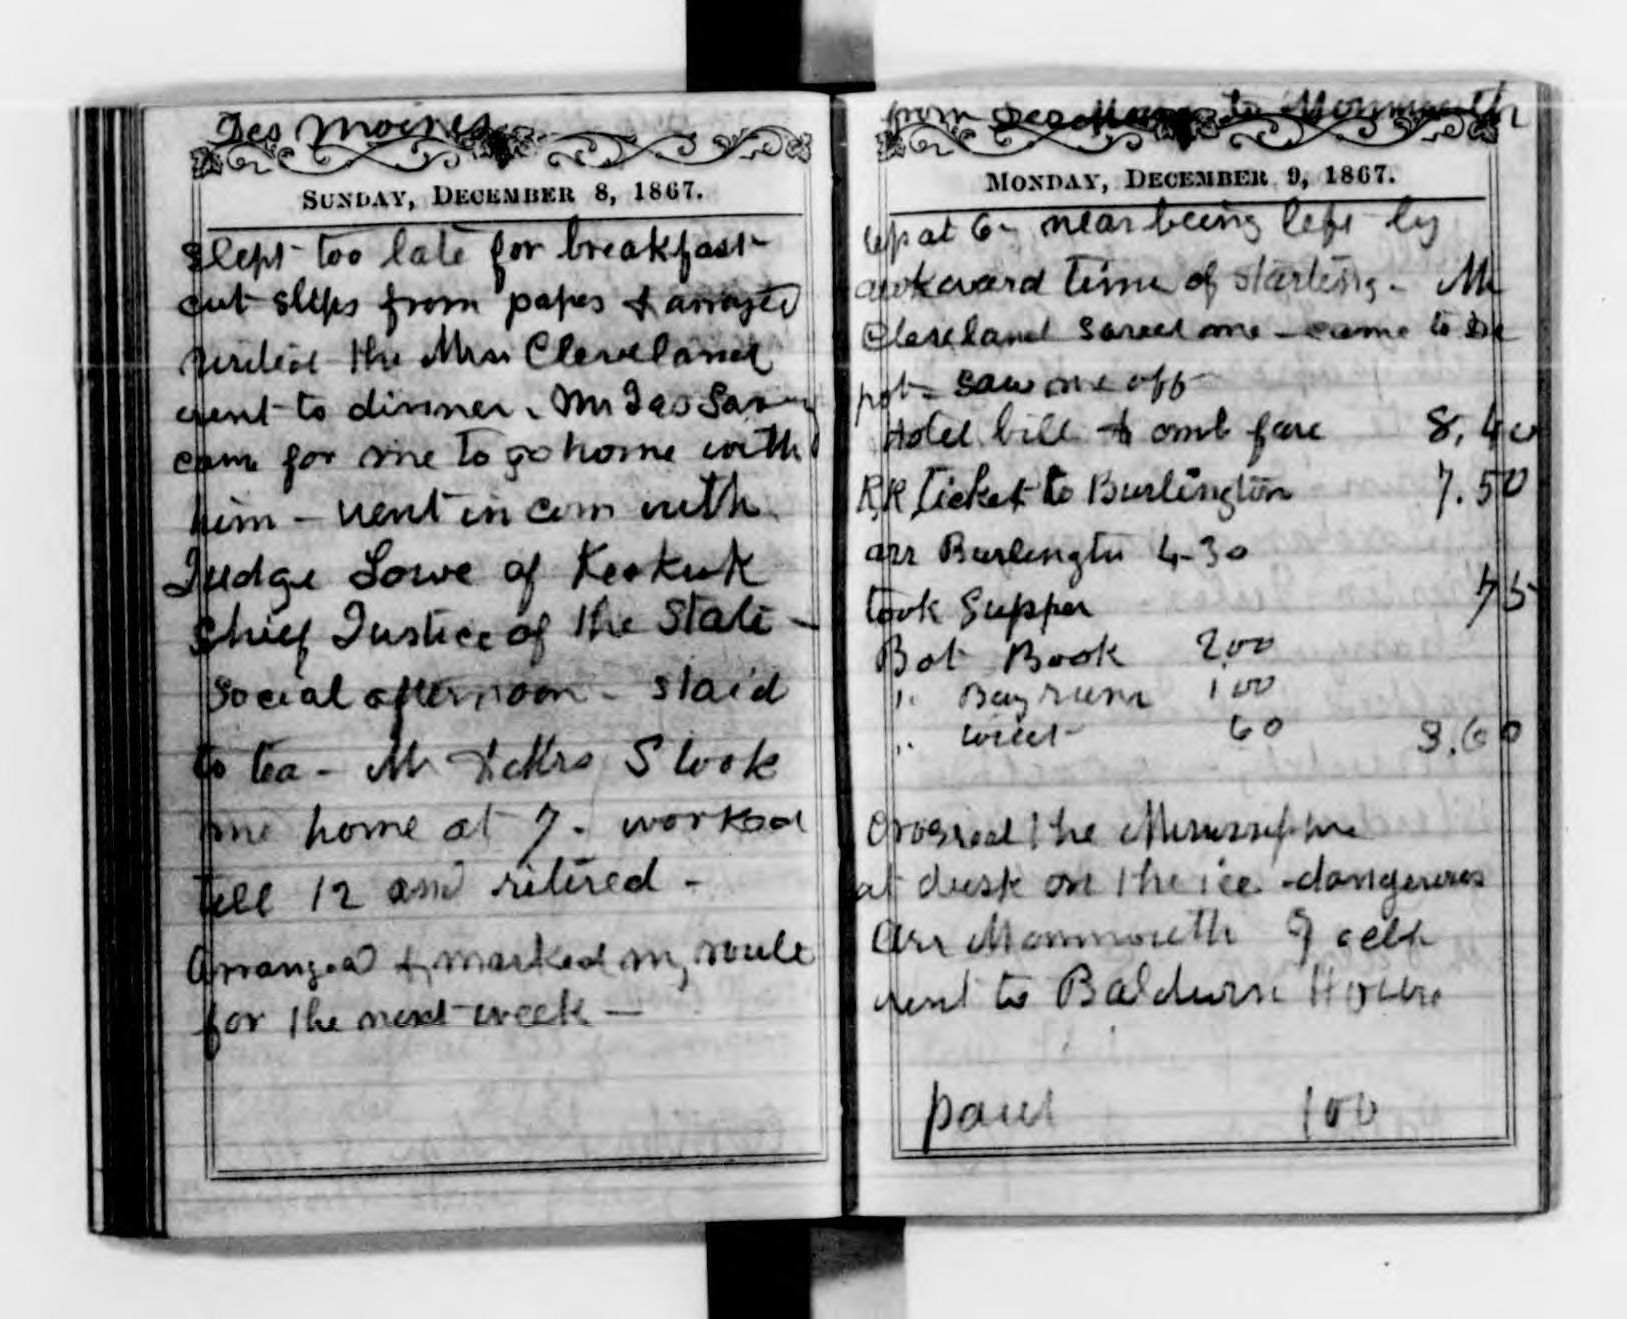 Des Moines
SUNDAY, DECEMBER 8, 1867.
Slept too late for breakfast
cut slips from papes & arranged
visited the Mrs Cleveland
went to dinner. Mr Jas Sav
cam for me to go home with
him – went in com with
Judge Lowe of Keokuk
Chief Justice of the State –
Social afternoon – staid
to tea – Mr & Mrs S took
me home at 7. worked
till 12 and retired –
Arranged & marked my route
for the next week –
from Des Moines to Monmouth
MONDAY, DECEMBER 9, 1867.
up at 6 – near being left by
awkward time of starting – Mr
Cleveland saved me – came to De
pot – saw me off –
Hotel bill & omb fare 8,40
RR ticket to Burlington 7.50
arr Burlington 4-30
took Supper 75
Bot Book 2,00
" Bay rum 1 00
" 60 3.60
Crossed the Mississippi
at dusk on the ice – dangerous
Arr Monmouth 9 oclk
went to Baldwin House
paid 100